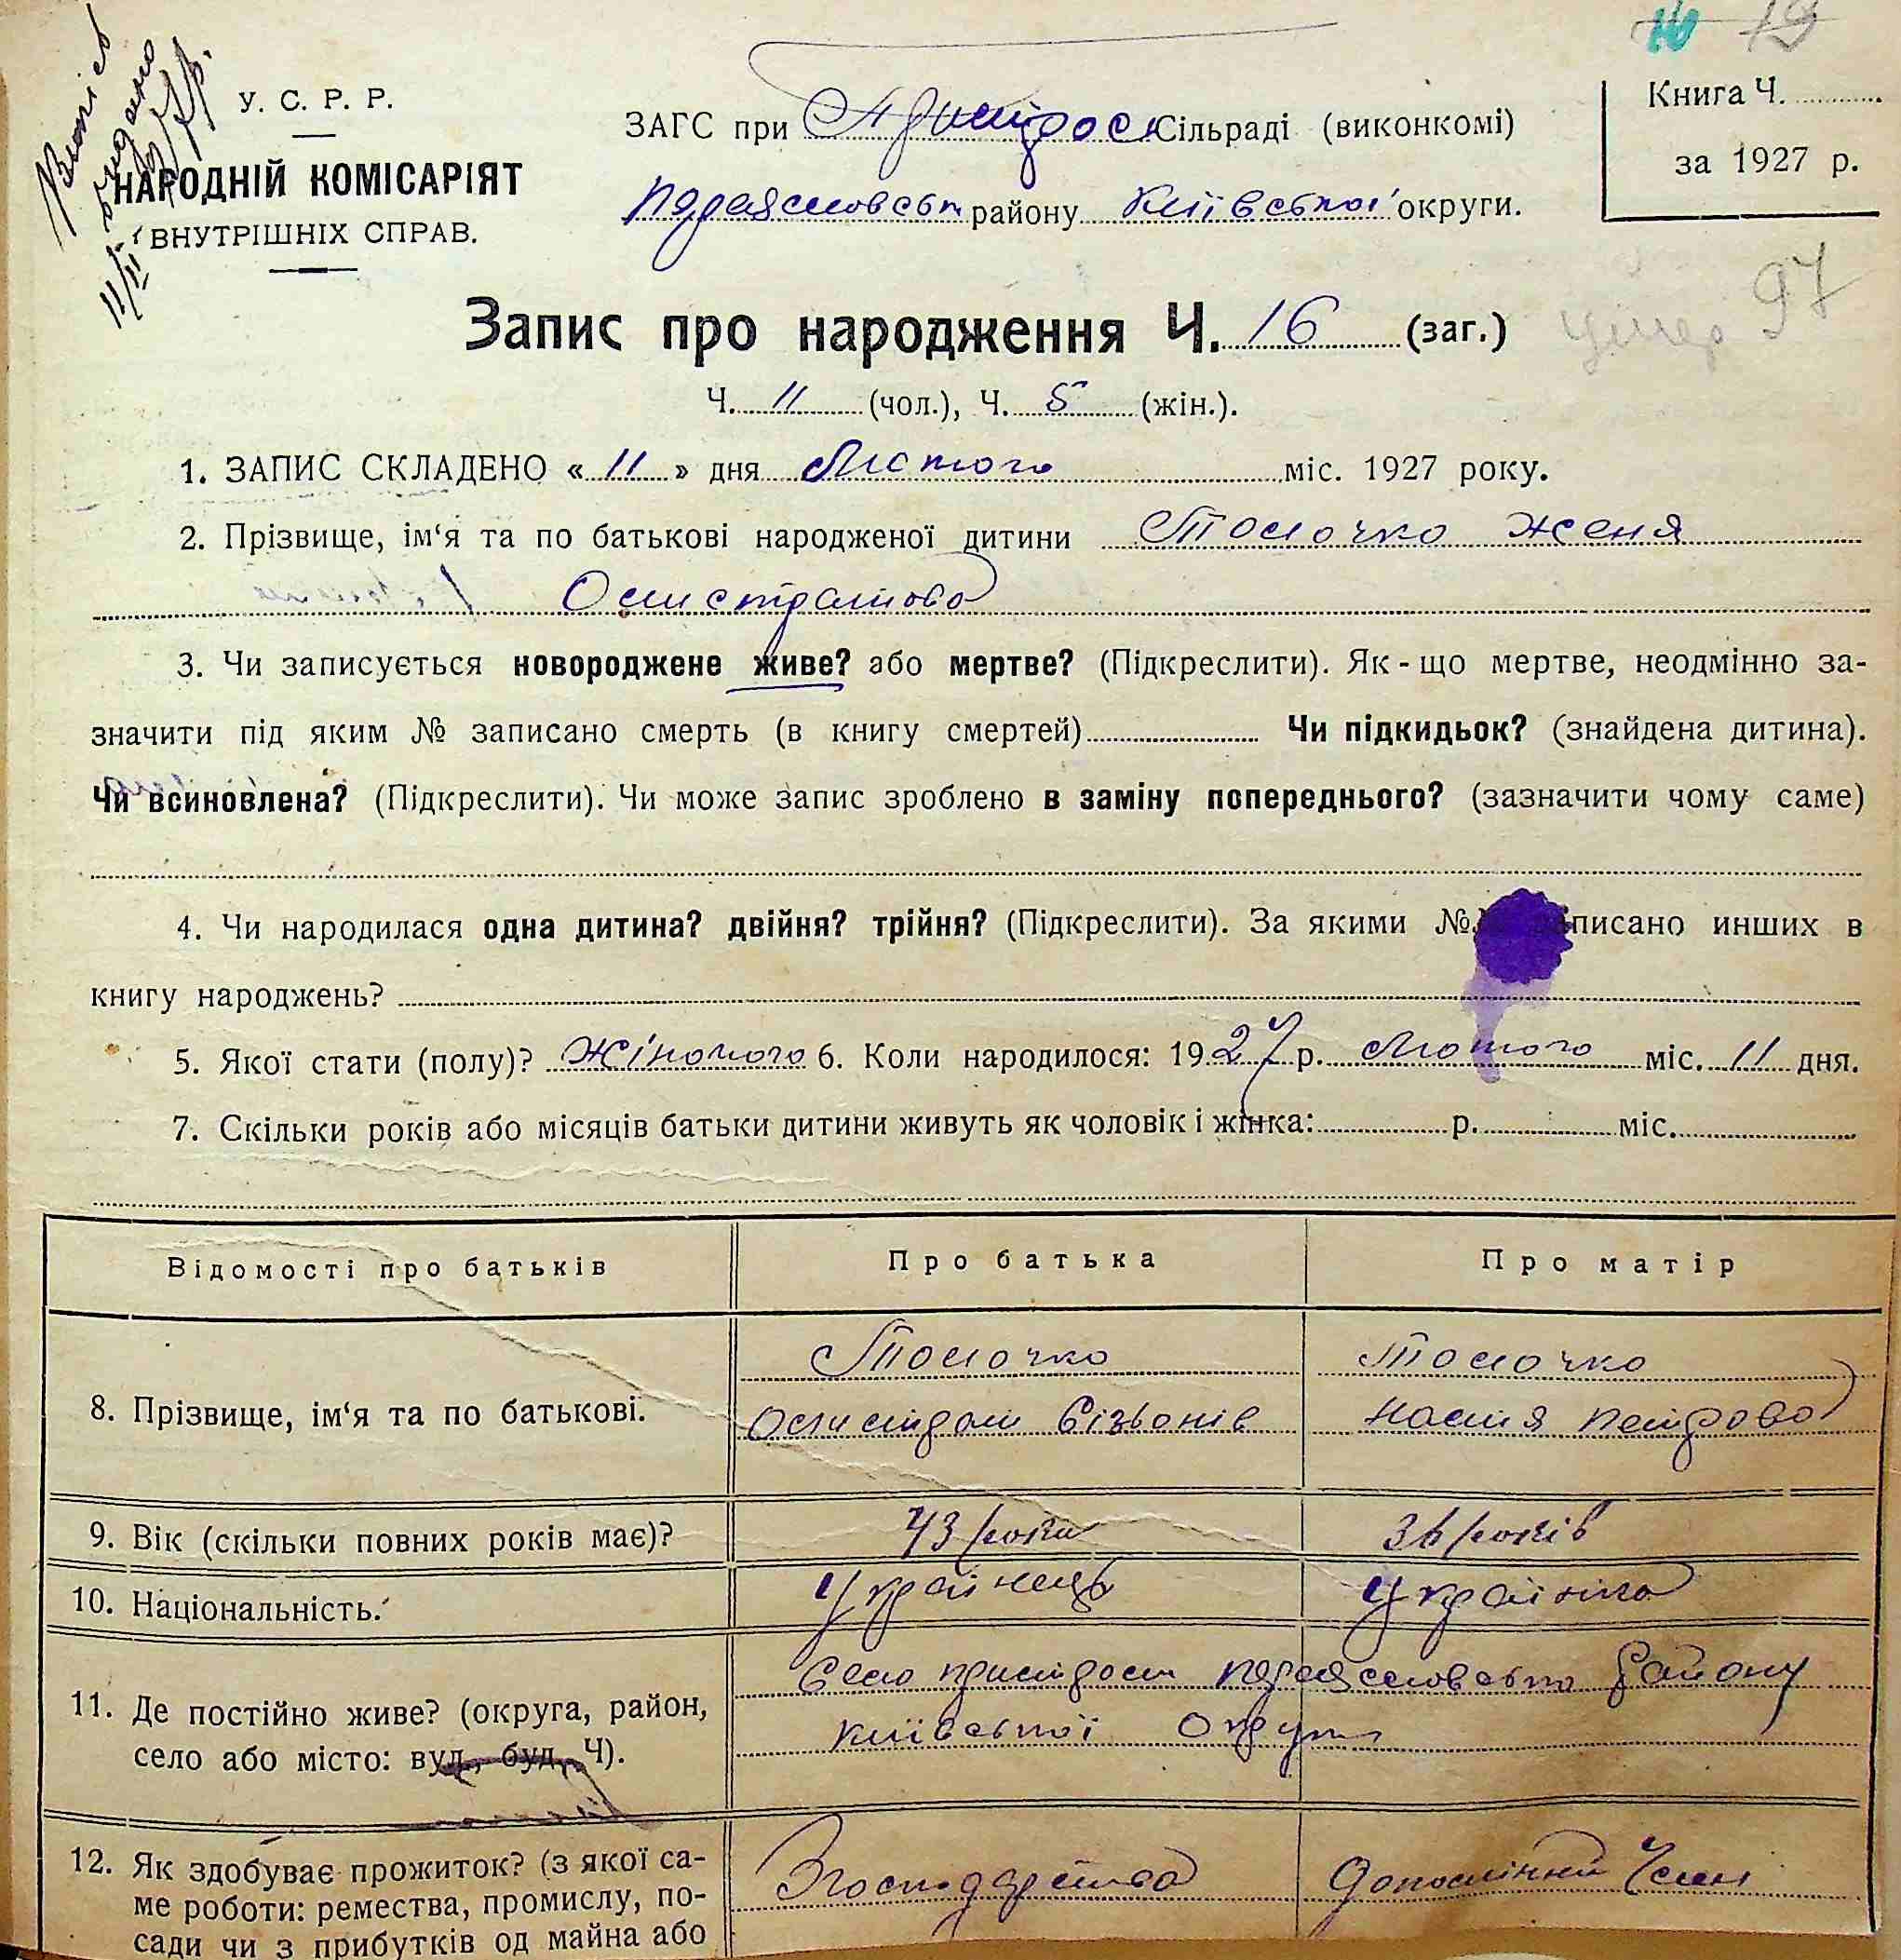 19
У. С. Р. Р.
НАРОДНІЙ КОМІСАРІЯТ
ВНУТРІШНІХ СПРАВ.
ЗАГС при Пристромск Сільраді (виконкомі)
району Київської округи.
Книга Ч.
за 1927 р.
97
Запис про народження Ч. 16 (заг.)
Ч. 11 (чол.), Ч. 5 (жін.).
1. ЗАПИС СКЛАДЕНО « 11 » дня Лютого міс. 1927 року.
2. Прізвище, ім‘я та по батькові народженої дитини Толочко Женя
3. Чи записується новороджене живе? або мертве? (Підкреслити). Як - що мертве, неодмінно за-
значити під яким № записано смерть (в книгу смертей) Чи підкидьок? (знайдена дитина).
Чи всиновлена? (Підкреслити). Чи може запис зроблено в заміну попереднього? (зазначити чому саме)
4. Чи народилася одна дитина? двійня? трійня? (Підкреслити). За якими писано инших в
книгу народжень?
5. Якої стати (полу)? Жіночого 6. Коли народилося: 1927 р. Лютого міс. 11 дня.
7. Скільки років або місяців батьки дитини живуть як чоловік і жінка: р. міс.
Відомості про батьків Про батька Про матір
Толочко Толочко
8. Прізвище, ім‘я та по батькові. Настя Петрова
9. Вік (скільки повних років має)? 43 роки 36 років
10. Національність. Українець Українка
11. Де постійно живе? (округа, район, Село району
село або місто: вуд., буд., Ч). Київської Округи
12. Як здобуває прожиток? (з якої са- З господарства
ме роботи: ремества, промислу, по-
сади чи з прибутків од майна або